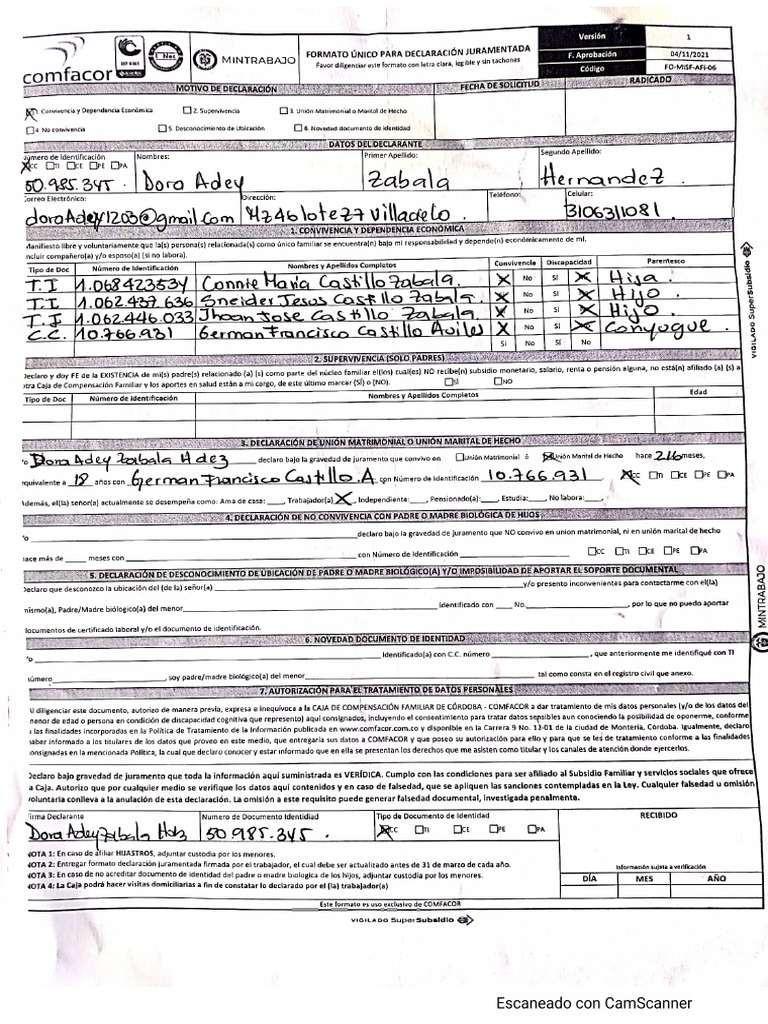 comfacor
MINTRABAJO
FORMATO ÚNICO PARA DECLARACIÓN JURAMENTADA
Favor diligenciar este formato con letra clara, legible y sin tachones
Versión 1
F. Aprobación 04/11/2021
Código FO-MISF-AFI-06
MOTIVO DE DECLARACIÓN FECHA DE SOLICITUD RADICADO
X 1. Convivencia y Dependencia Económica 2. Supervivencia 3. Unión Matrimonial o Marital de Hecho
4. No convivencia 5. Desconocimiento de Ubicación 6. Novedad documento de identidad
DATOS DEL DECLARANTE
Número de Identificación Nombres: Primer Apellido: Segundo Apellido:
X CC TI CE PE PA
50.985.345. Dora Adey Zabala Hernandez.
Correo Electrónico: Dirección: Teléfono: Celular:
doraAdey1203@gmail.com Mz46lote27 Villacielo 3106311081
1. CONVIVENCIA Y DEPENDENCIA ECONÓMICA
Manifiesto libre y voluntariamente que la(s) persona(s) relacionada(s) como único familiar se encuentra(n) bajo mi responsabilidad y depende(n) económicamente de mí.
Incluir compañero(a) y/o esposo(a) (si no labora).
Tipo de Doc Número de Identificación Nombres y Apellidos Completos Convivencia Discapacidad Parentesco
T.I 1.068423534 Connie Maria Castillo Zabala. X No SÍ X Hija
T.I 1.062.437.636 Sneider Jesus Castillo Zabala. X No SÍ X Hijo
T.I 1.062.446.033 Jhoan Jose Castillo Zabala. X No SÍ X Hijo
C.C. 10.766.931 German Francisco Castillo Aviles X No SÍ X Conyugue
Sí No SÍ No
2. SUPERVIVENCIA (SOLO PADRES)
Declaro y doy FE de la EXISTENCIA de mi(s) padre(s) relacionado (a) (s) como parte del núcleo familiar el(los) cual(es) NO recibe(n) subsidio monetario, salario, renta o pensión alguna, no está(n) afiliado (a) (s) a
otra Caja de Compensación Familiar y los aportes en salud están a mi cargo, de este último marcar (SÍ) o (NO). SÍ NO
Tipo de Doc Número de Identificación Nombres y Apellidos Completos Edad
3. DECLARACIÓN DE UNIÓN MATRIMONIAL O UNIÓN MARITAL DE HECHO
Yo Dora Adey Zabala Hdez declaro bajo la gravedad de juramento que convivo en Unión Matrimonial ó X Unión Marital de Hecho hace 216 meses,
equivalente a 18 años con German Francisco Castillo.A con Número de Identificación 10.766.931 X CC TI CE PE PA
Además, el(la) señor(a) actualmente se desempeña como: Ama de casa: Trabajador(a) X, Independiente: , Pensionado(a): , Estudia: , No labora: .
4. DECLARACIÓN DE NO CONVIVENCIA CON PADRE O MADRE BIOLÓGICA DE HIJOS
Yo declaro bajo la gravedad de juramento que NO convivo en union matrimonial, ni en unión marital de hecho
hace más de meses con con Número de Identificación CC TI CE PE PA
5. DECLARACIÓN DE DESCONOCIMIENTO DE UBICACIÓN DE PADRE O MADRE BIOLÓGICO(A) Y/O IMPOSIBILIDAD DE APORTAR EL SOPORTE DOCUMENTAL
Declaro que desconozco la ubicación del (de la) señor(a) y/o presento inconvenientes para contactarme con el(la)
mismo(a), Padre/Madre biológico(a) del menor Identificado con No. , por lo que no puedo aportar
documentos de certificado laboral y/o el documento de identificación.
6. NOVEDAD DOCUMENTO DE IDENTIDAD
Yo Identificado(a) con C.C. número , que anteriormente me identifiqué con TI
número , soy padre/madre biológico(a) del menor tal como consta en el registro civil que anexo.
7. AUTORIZACIÓN PARA EL TRATAMIENTO DE DATOS PERSONALES
Al diligenciar este documento, autorizo de manera previa, expresa e inequívoca a la CAJA DE COMPENSACIÓN FAMILIAR DE CÓRDOBA - COMFACOR a dar tratamiento de mis datos personales (y/o de los datos del
menor de edad o persona en condición de discapacidad cognitiva que represento) aquí consignados, incluyendo el consentimiento para tratar datos sensibles aun conociendo la posibilidad de oponerme, conforme
a las finalidades incorporadas en la Política de Tratamiento de la Información publicada en www.comfacor.com.co y disponible en la Carrera 9 No. 12-01 de la ciudad de Montería, Córdoba. Igualmente, declaro
saber informado a los titulares de los datos que proveo en este medio, que entregaría sus datos a COMFACOR y que poseo su autorización para ello y para que se les de tratamiento conforme a las finalidades
consignadas en la mencionada Política, la cual declaro conocer y estar informado que en ella se presentan los derechos que me asisten como titular y los canales de atención donde ejercerlos.
Declaro bajo gravedad de juramento que toda la información aquí suministrada es VERÍDICA. Cumplo con las condiciones para ser afiliado al Subsidio Familiar y servicios sociales que ofrece
la Caja. Autorizo que por cualquier medio se verifique los datos aquí contenidos y en caso de falsedad, que se apliquen las sanciones contempladas en la Ley. Cualquier falsedad u omisión
voluntaria conlleva a la anulación de esta declaración. La omisión a este requisito puede generar falsedad documental, investigada penalmente.
Firma Declarante Numero de Documento Identidad Tipo de Documento de Identidad RECIBIDO
Dora Adey Zabala Hdz 50.985.345. X CC TI CE PE PA
NOTA 1: En caso de afiliar HIJASTROS, adjuntar custodia por los menores.
NOTA 2: Entregar formato declaración juramentada firmada por el trabajador, el cual debe ser actualizado antes de 31 de marzo de cada año.
NOTA 3: En caso de no acreditar documento de identidad del padre o madre biologica de los hijos, adjuntar custodia por los menores.
NOTA 4: La Caja podrá hacer visitas domiciliarias a fin de constatar lo declarado por el (la) trabajador(a)
Información sujeta a verificación
DÍA MES AÑO
Este formato es uso exclusivo de COMFACOR
VIGILADO SuperSubsidio
VIGILADO SuperSubsidio
MINTRABAJO
Escaneado con CamScanner